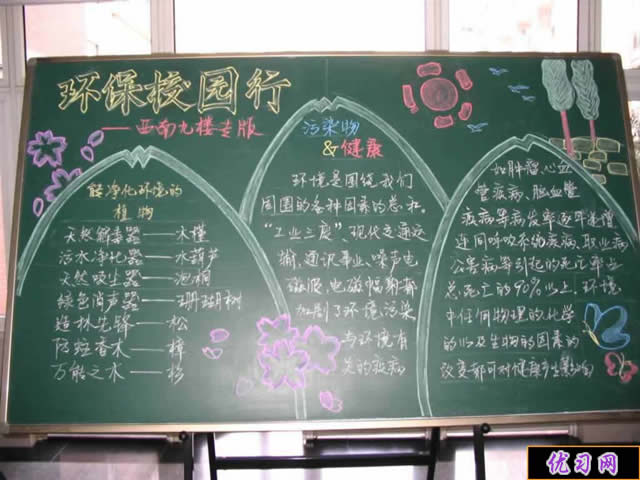 环保校园行
——西南九楼专版
能净化环境的
植物
天然解毒器——木槿
污水净化器——水葫芦
天然吸尘器——泡桐
绿色消声器——珊瑚树
造林先锋——松
防蛀香木——樟
万能之木——杉
污染物
&健康
环境是围绕我们
周围的各种因素的总和。
"工业三废"、现代交通运
输、通讯事业、噪声电
磁波、电磁辐射都
加剧了环境污染
与环境有
关的疾病
如肿瘤、心血
管疾病、脑血管
疾病等病发率逐年递增
连同呼吸系统疾病、职业病
公害病等引起的死亡率占
总死亡的90%以上,环境
中任何物理的化学
的以及生物的因素的
改变都可对健康产生影响
优习网